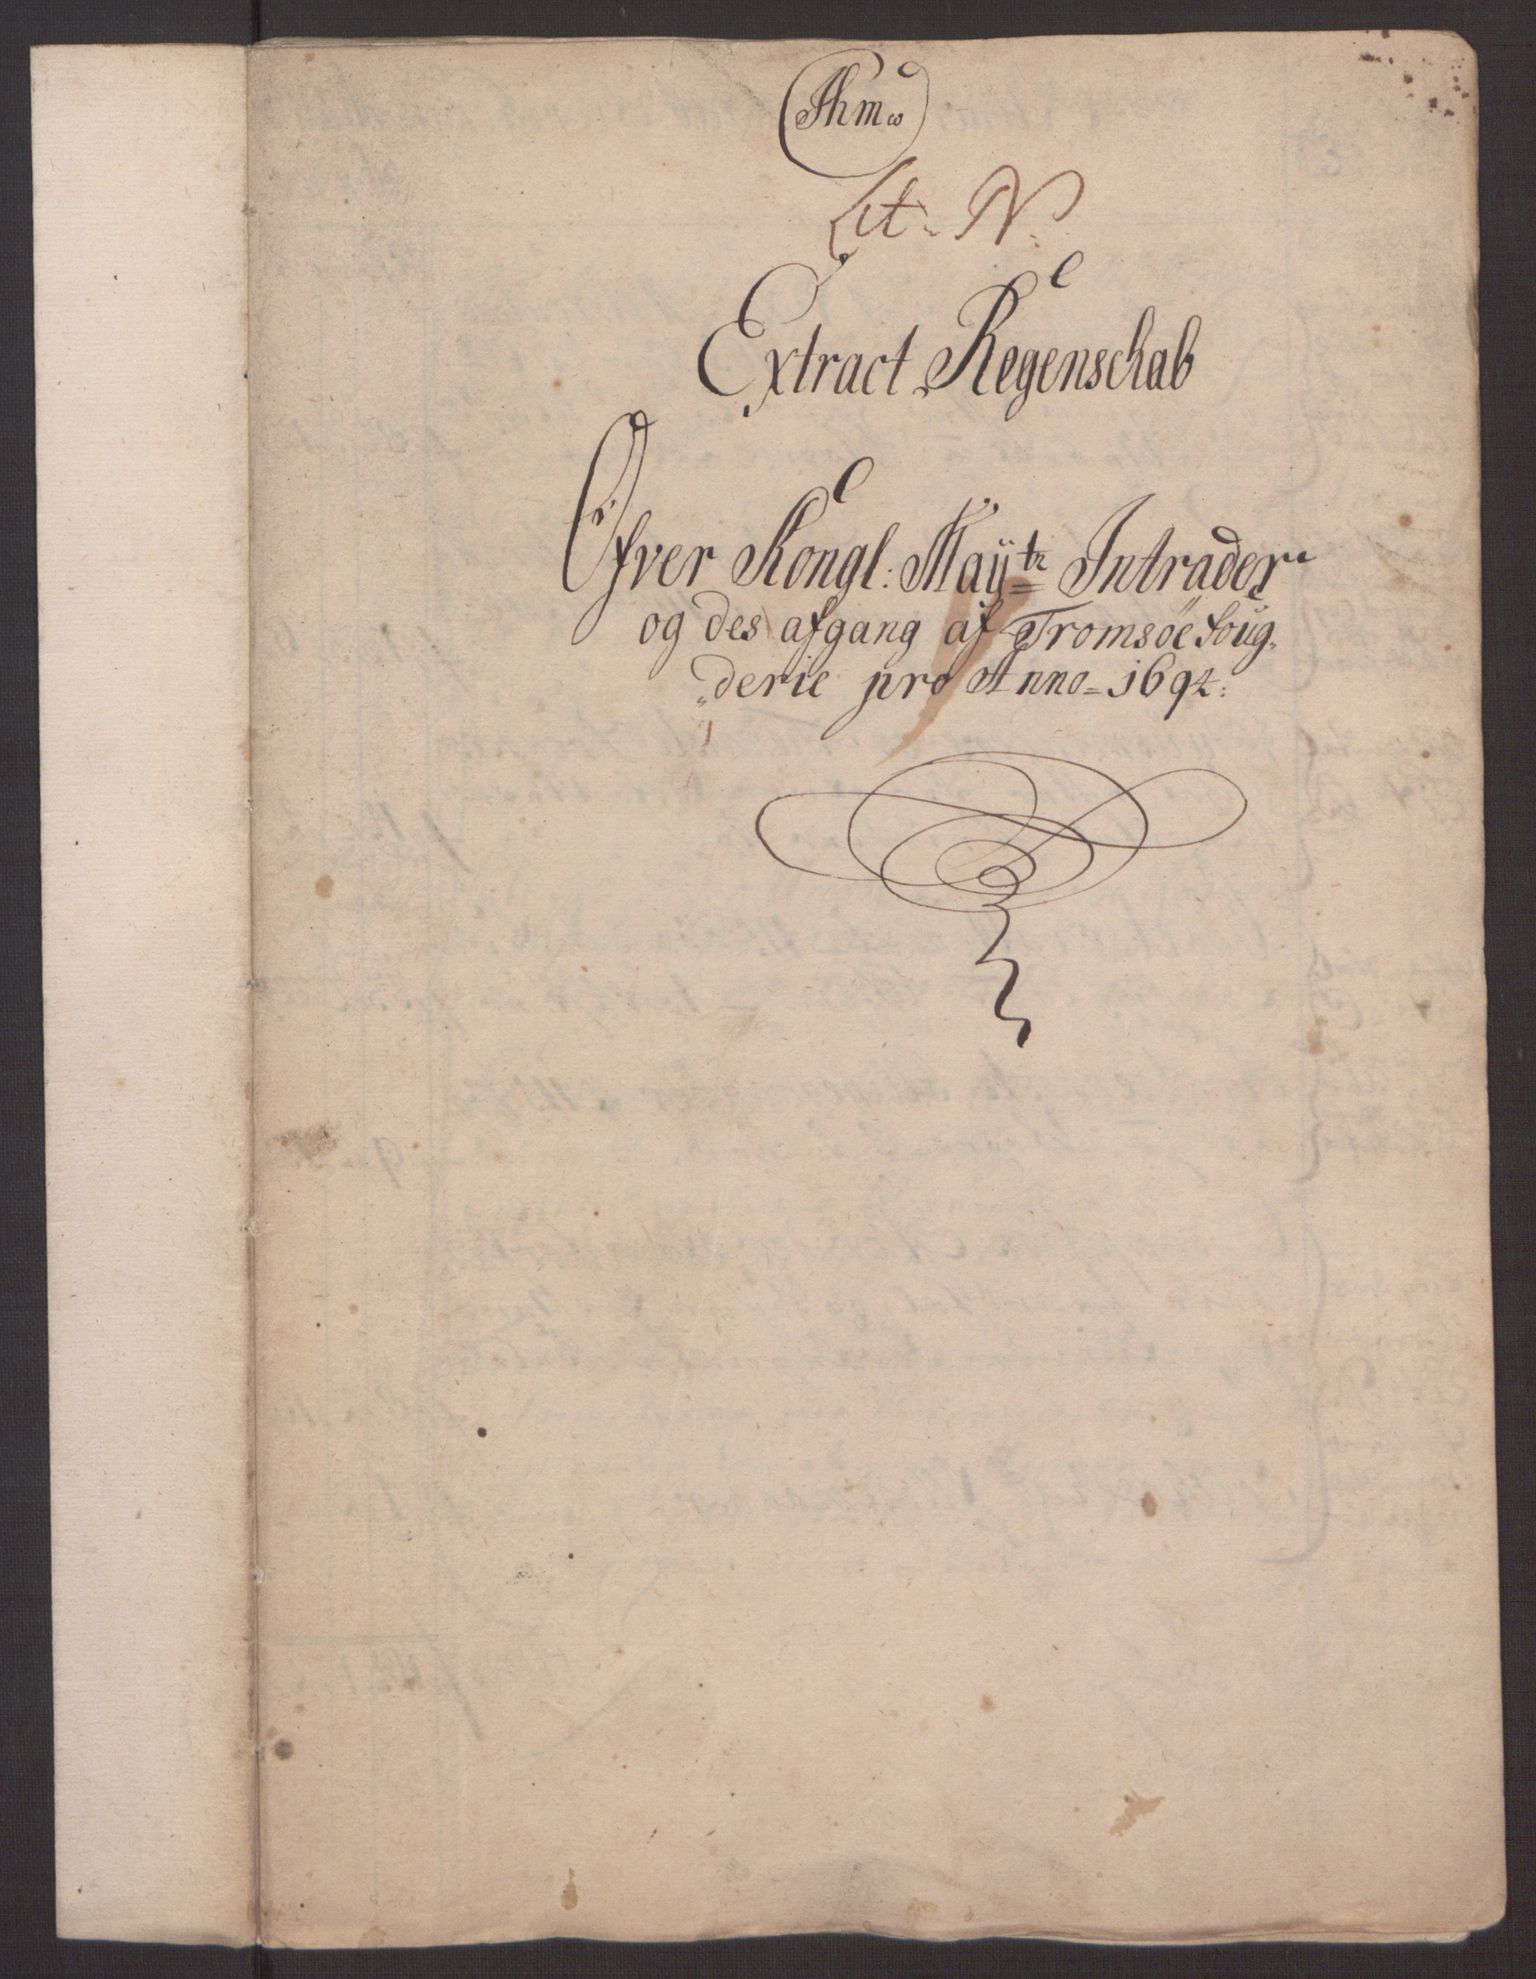 Thmø
Lit. N.
Extract Regenschab
Ofver Kongl: Maÿtz Intrader
og des afgang af Tromsöe foug-
derie pro Anno = 1694: